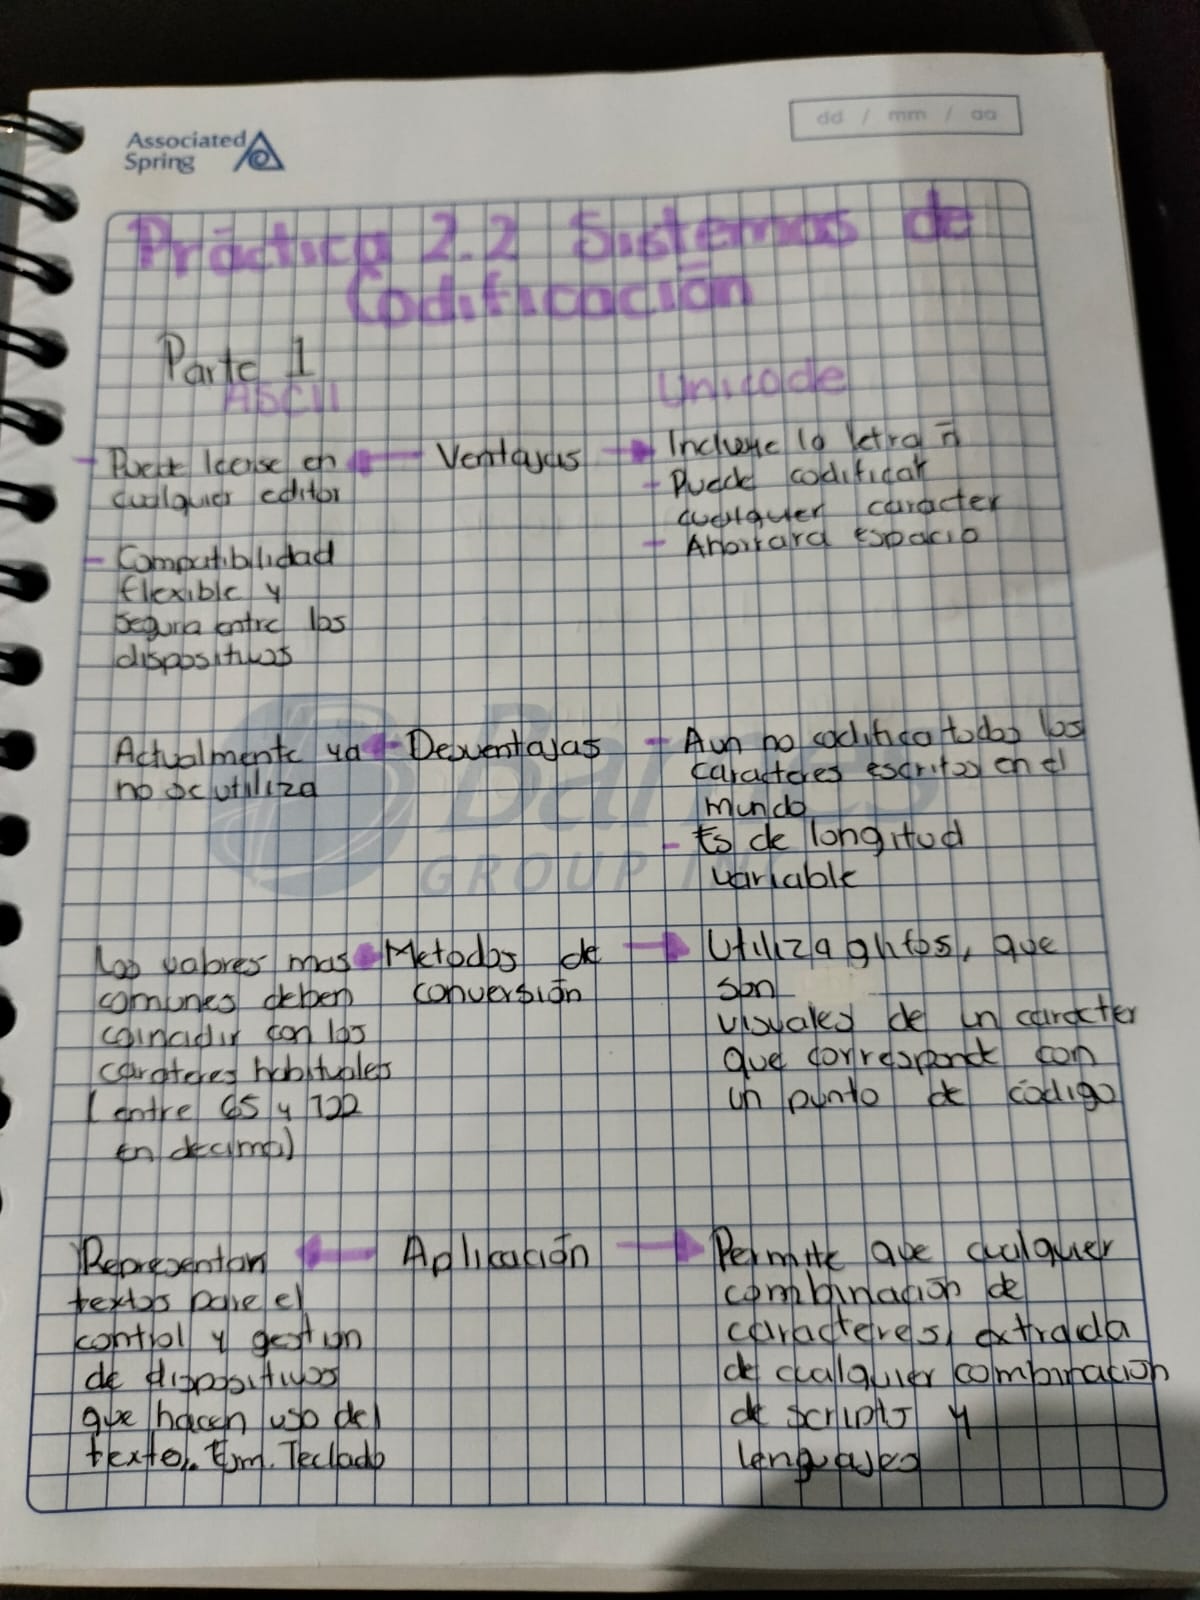 Associated
Spring
dd / mm / aa
Práctica 2.2 Sistemas de
Codificación
Parte 1
ASCII
Unicode
- Puede leerse en
cualquier editor
- Compatibilidad
flexible y
segura entre los
dispositivos
Ventajas
Incluye la letra ñ
- Puede codificar
cualquier caracter
- Ahorrara espacio
Actualmente ya
no se utiliza
Desventajas
- Aun no codifica todos los
caracteres escritos en el
mundo
- Es de longitud
variable
Barnes
GROUP IN
Los valores mas
comunes deben
coinadir con los
carateres habituales
(entre 65 y 122
en decimal)
Metodos de
conversión
Utiliza glifos, que
son
visuales de un caracter
que corresponde con
un punto de código
Representan
textos para el
control y gestion
de dispositivos
que hacen uso del
texto. Ejm. Teclado
Aplicación
Permite que cualquier
combinación de
caracteres, extraida
de cualquier combinacion
de scripts y
lenguajes